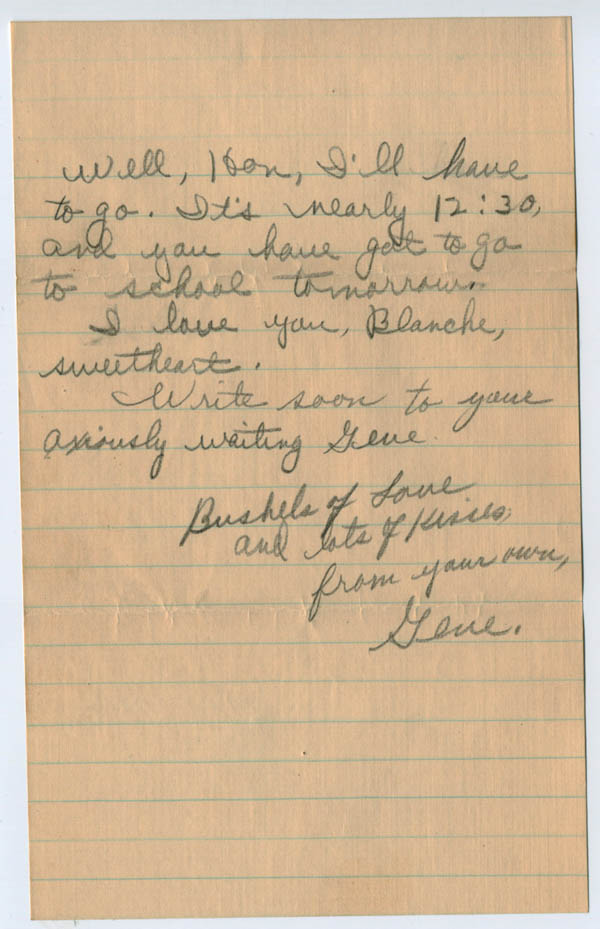 Well, Hon, I'll have
to go. It's nearly 12:30,
and you have got to go
to school tomorrow.
I love you, Blanche,
sweetheart.
Write soon to your
axiously waiting Gene.
Bushels of Love
and lots of Kisses,
from your own,
Gene.